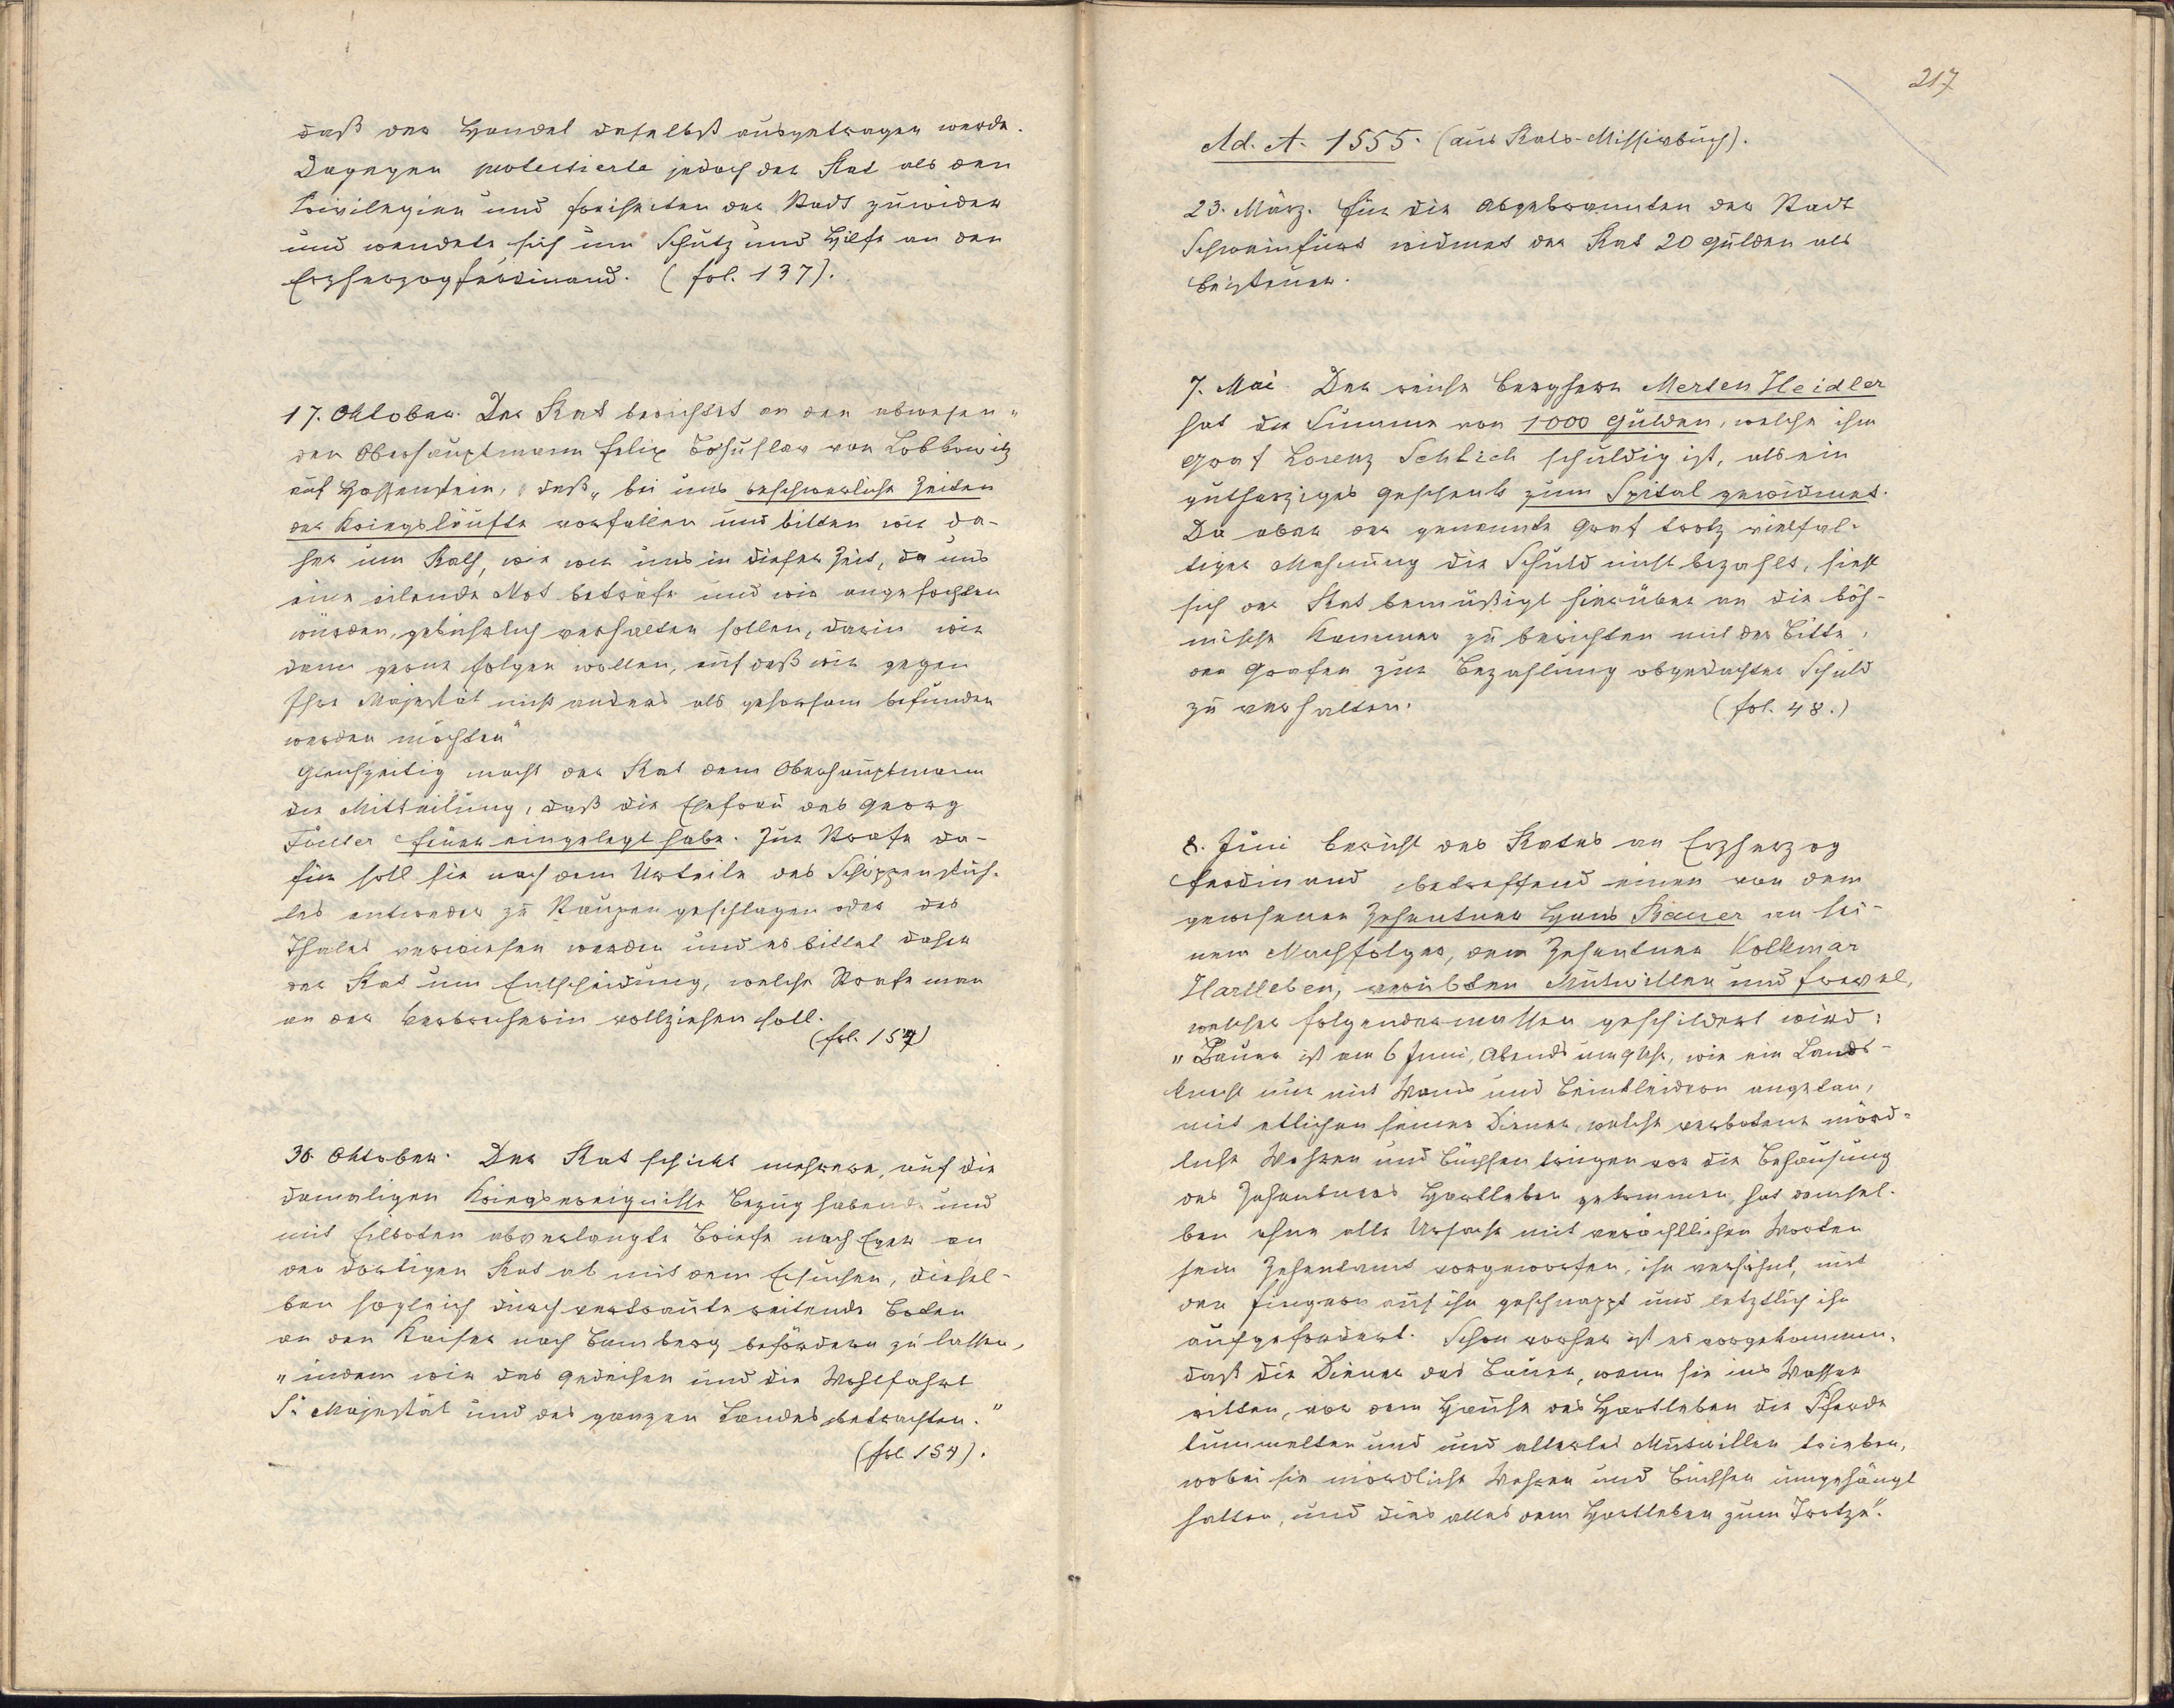 daß der Handel daselbst ausgetragen werde.
Dagegen protestierte jedoch der Rat als den
Privilegien und Freiheiten der Stadt zuwider
und wendete sich um Schutz und Hilfe an den
Erzherzog Ferdinand. (fol. 137).
17. Oktober. Der Rat berichtet an den abwesen-
den Oberhauptmann Felix Bohuslav von Lobkowitz
auf Hassenstein, daß „bei uns beschwerliche Zeiten
der Kriegsläufte vorfallen und bitten wir da-
her um Rath, wie wir uns in dieser Zeit, da uns
eine eilende Not beträfe und wir angefochten
würden, gebührlich verhalten sollen, darin wir
dann gerne folgen wollen, auf daß wir gegen
Ihre Majestät nicht anders als gehorsam befunden
werden möchten"
Gleichzeitig macht der Rat dem Oberhauptmann
die Mitteilung, daß die Ehefrau des Georg
Feuer eingelegt habe. Zur Strafe da-
für soll sie nach dem Urteile des Schöppenstuh-
les entweder zu Staupen geschlagen oder des
Thales verwiesen werden und es bittet daher
der Rat um Entscheidung, welche Strafe man
an der Verbrecherin vollziehen soll.
(fol. 157)
30. Oktober. Der Rat schickt mehrere, auf die
damaligen Kriegsereignisse Bezug habende und
mit Eilboten abverlangte Briefe nach Eger an
den dortigen Rat ab mit dem Ersuchen, diesel-
ben sogleich durch vertraute reitende Boten
an den Kaiser nach Bamberg befördern zu lassen,
„indem wir das Gedeihen und die Wohlfahrt
Sr Majestät und des ganzen Landes betrachten."
(fol 154).
217
Ad. A. 1555. (aus Rats-Missivbuch).
23. März. Für die Abgebrannten der Stadt
Schweinfurt widmet der Rat 20 Gulden als
Beisteuer.
7. Mai. Der reiche Bergherr Merten Heidler
hat die Summe von 1000 Gulden, welche ihm
Graf Lorenz Schlick schuldig ist, als ein
gutherziges Geschenk zum Spital gewidmet.
Da aber der genannte Graf trotz vielfäl-
tiger Mahnung die Schuld nicht bezahlt, sieht
sich der Rat bemüßigt hierüber an die böh-
mische Kammer zu berichten mit der Bitte,
den Grafen zur Bezahlung obgedachter Schuld
zu verhalten. (fol. 48.)
8. Juni Bericht des Rates an Erzherzog
Ferdinand betreffend einen von dem
gewesenen Zehentner Hans Bauer an sei-
nem Nachfolger, dem Zehentner Volkmar
Hartleben, verübten Mutwillen und Frevel,
welcher folgendermassen geschildert wird:
„Bauer ist am 6 Juni, Abends um 9 Uhr, wie ein Lands-
knecht nur mit Wams und Beinkleidern angetan,
mit etlichen seiner Diener, welche verbotene mörd-
liche Wehren und Büchsen trugen vor die Behausung
des Zehentners Hartleben gekommen, hat demsel-
ben ohne alle Ursache mit verächtlichen Worten
sein Zehentamt vorgeworfen, ihn verhöhnt, mit
den Fingern auf ihn geschnappt und letztlich ihn
aufgefordert. Schon vorher ist es vorgekommen,
daß die Diener des Bauer, wenn sie ins Wasser
ritten, vor dem Hause des Hartleben die Pferde
tummelten und und allerlei Mutwillen trieben,
wobei sie mördliche Wehren und Büchsen umgehängt
hatten, und dies alles dem Hartleben zum Trotze".